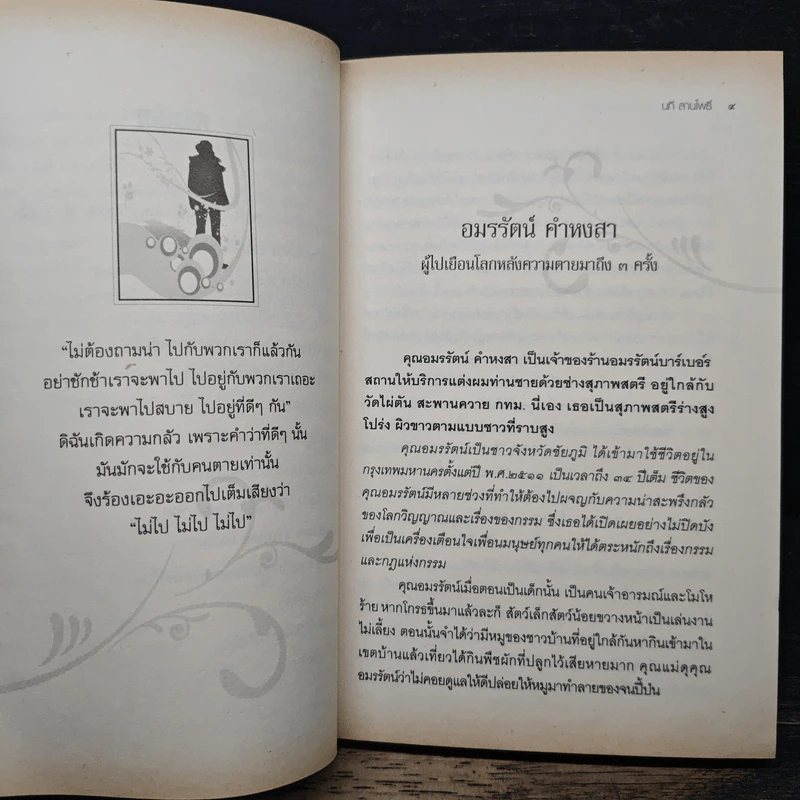 “ไม่ต้องถามน่า ไปกับพวกเราก็แล้วกัน
อย่าชักช้าเราจะพาไป ไปอยู่กับพวกเราเถอะ
เราจะพาไปสบาย ไปอยู่ที่ดีๆ กัน”
ดิฉันเกิดความกลัว เพราะคำว่าที่ดีๆ นั้น
มันมักจะใช้กับคนตายเท่านั้น
จึงร้องเอะอะออกไปเต็มเสียงว่า
“ไม่ไป ไม่ไป ไม่ไป”
นที ลานโพธิ์ ๙
อมรรัตน์ คำหงสา
ผู้ไปเยือนโลกหลังความตายมาถึง ๓ ครั้ง
คุณอมรรัตน์ คำหงสา เป็นเจ้าของร้านอมรรัตน์บาร์เบอร์
สถานให้บริการแต่งผมท่านชายด้วยช่างสุภาพสตรี อยู่ใกล้กับ
วัดไผ่ตัน สะพานควาย กทม. นี่เอง เธอเป็นสุภาพสตรีร่างสูง
โปร่ง ผิวขาวตามแบบชาวที่ราบสูง
คุณอมรรัตน์เป็นชาวจังหวัดชัยภูมิ ได้เข้ามาใช้ชีวิตอยู่ใน
กรุงเทพมหานครตั้งแต่ปี พ.ศ.๒๕๑๑ เป็นเวลาถึง ๓๔ ปีเต็ม ชีวิตของ
คุณอมรรัตน์มีหลายช่วงที่ทำให้ต้องไปผจญกับความน่าสะพรึงกลัว
ของโลกวิญญาณและเรื่องของกรรม ซึ่งเธอได้เปิดเผยอย่างไม่ปิดบัง
เพื่อเป็นเครื่องเตือนใจเพื่อนมนุษย์ทุกคนให้ได้ตระหนักถึงเรื่องกรรม
และกฎแห่งกรรม
คุณอมรรัตน์เมื่อตอนเป็นเด็กนั้น เป็นคนเจ้าอารมณ์และโมโห
ร้าย หากโกรธขึ้นมาแล้วละก็ สัตว์เล็กสัตว์น้อยขวางหน้าเป็นเล่นงาน
ไม่เลี้ยง ตอนนั้นจำได้ว่ามีหมูของชาวบ้านที่อยู่ใกล้กันหากินเข้ามาใน
เขตบ้านแล้วเที่ยวได้กินพืชผักที่ปลูกไว้เสียหายมาก คุณแม่ดุคุณ
อมรรัตน์ว่าไม่คอยดูแลให้ดีปล่อยให้หมูมาทำลายของจนปี้ป่น